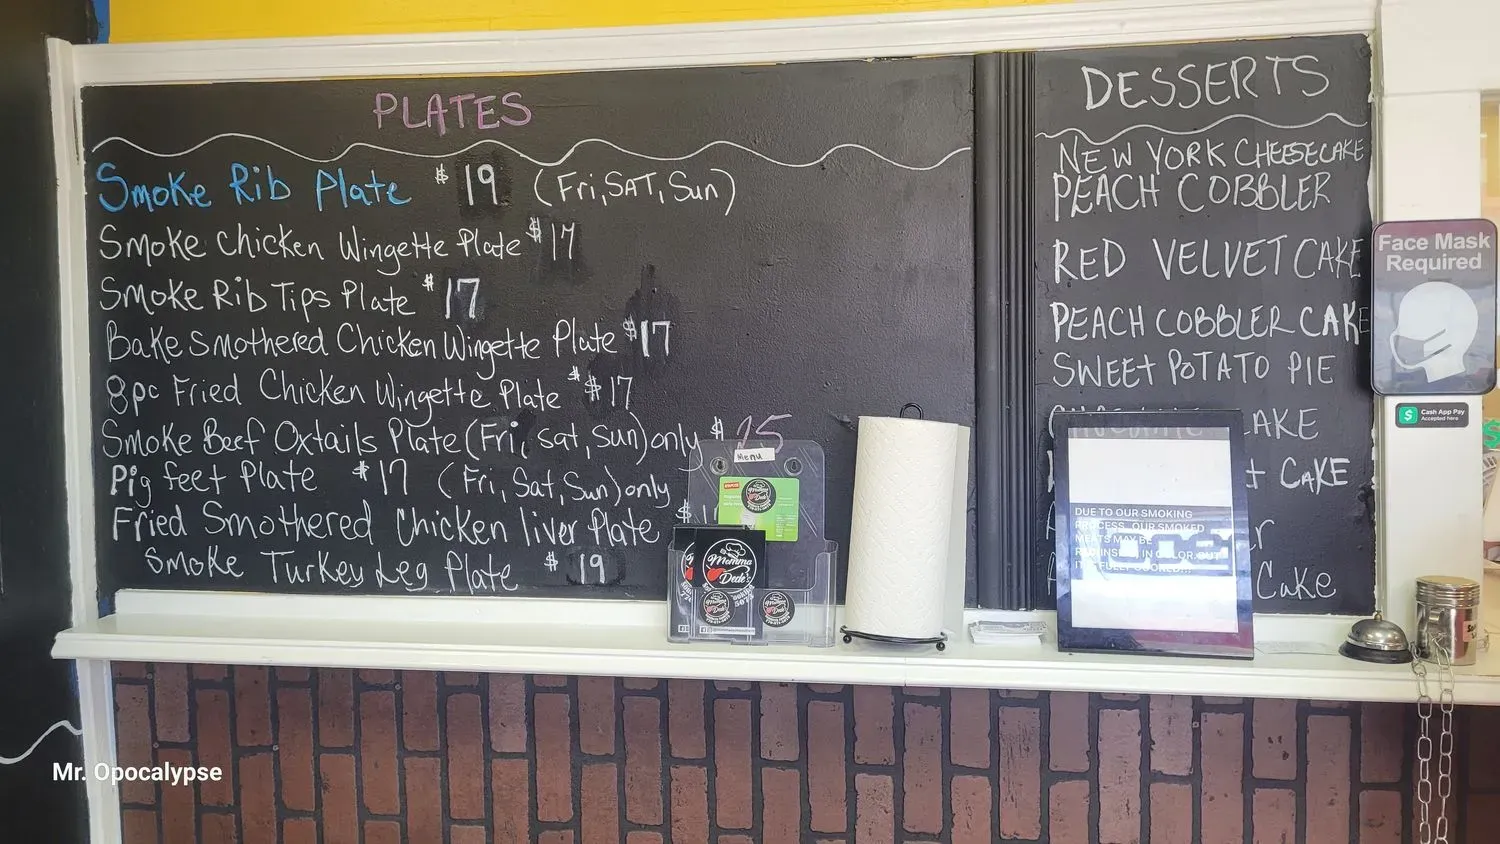 PLATES
Smoke Rib Plate $19 (Fri, SAT, Sun)
Smoke chicken Wingette Plate $17
Smoke Rib Tips Plate $17
Bake Smothered Chicken Wingette Plate $17
8pc Fried Chicken Wingette Plate $$17
Smoke Beef Oxtails Plate (Fri, sat, Sun) only $
Pig feet Plate $17 (Fri, Sat, Sun) only
Fried Smothered Chicken liver Plate $
Smoke Turkey Leg Plate $19
DESSERTS
NEW YORK CHEESECAKE
PEACH COBBLER
RED VELVET CAKE
PEACH COBBLER CAKE
SWEET POTATO PIE
CAKE
CAKE
Cake
Face Mask
Required
Cash App Pay
Accepted here
Menu
Momma
Dede's
DUE TO OUR SMOKING
PROCESS, OUR SMOKED
MEATS MAY BE
IN COLOR, BUT
FULLY COOKED!!!
Mr. Opocalypse